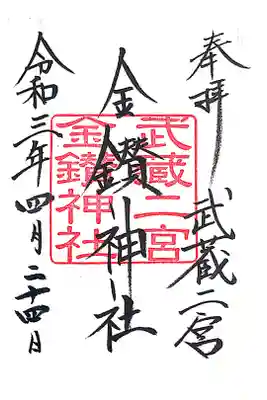 奉拝
武蔵二宮
金鑚神社
武蔵二宮
金鑚神社
令和三年四月二十四日